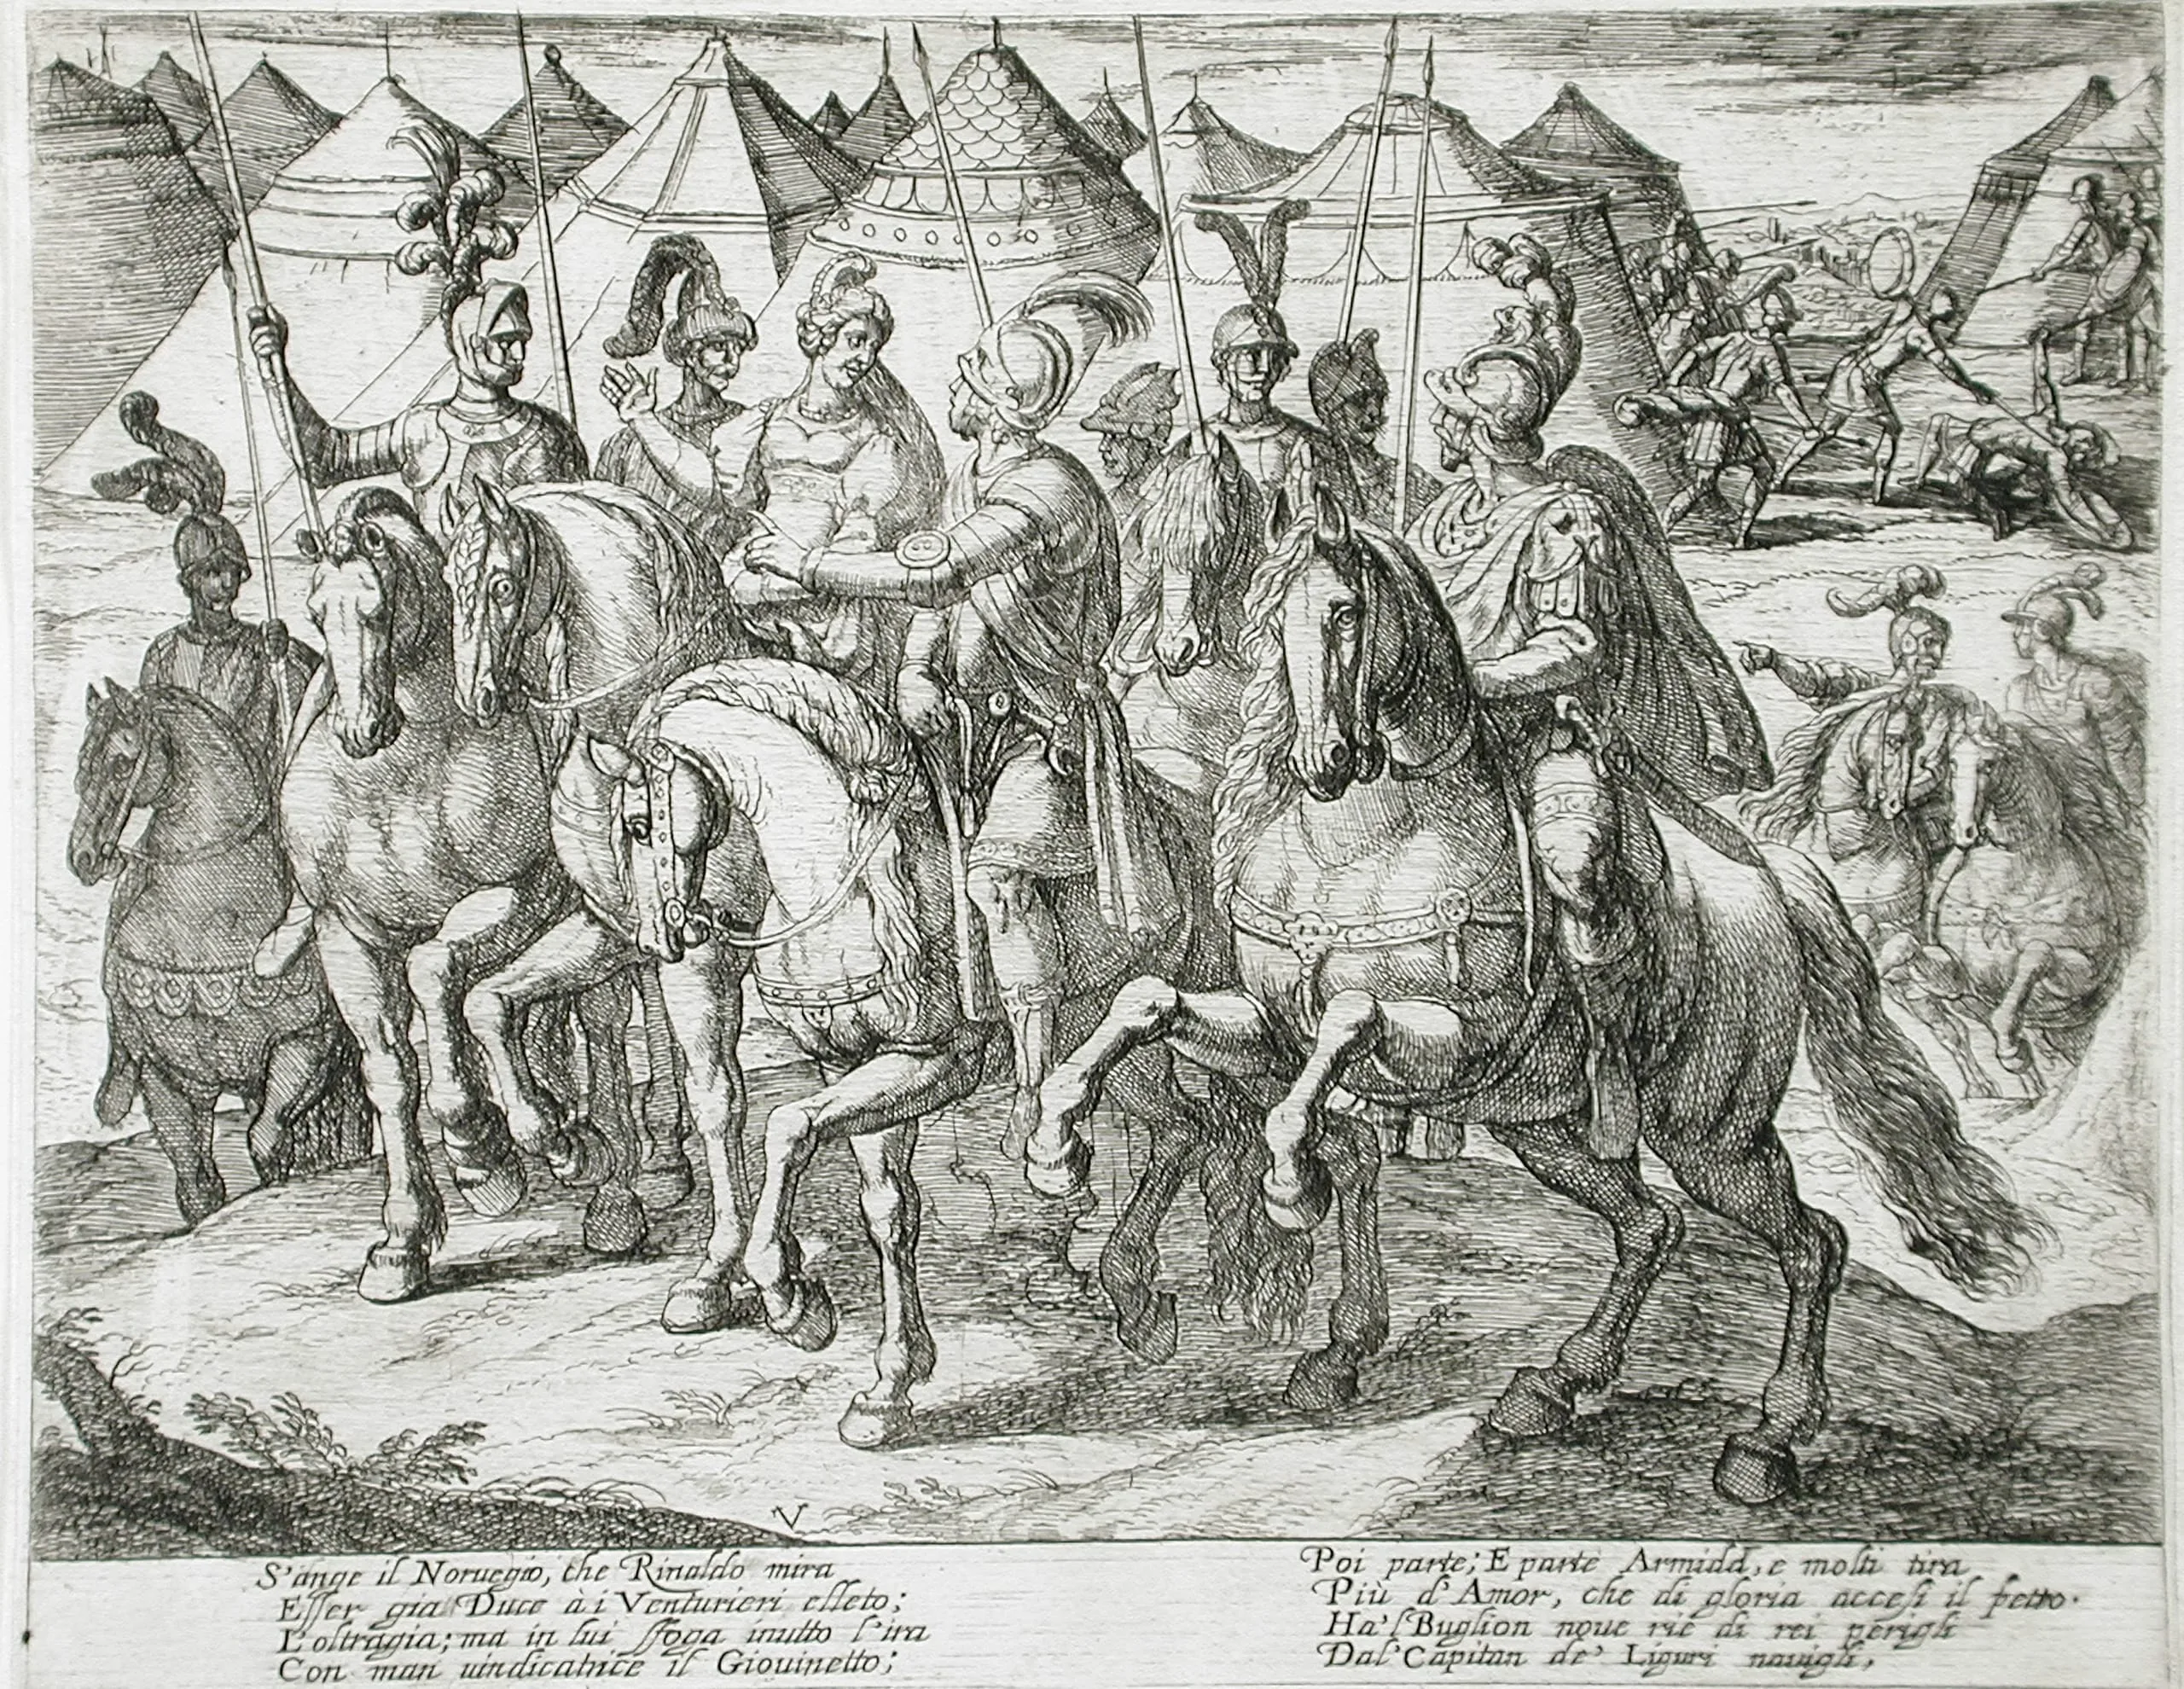 S'ange il Noruegio, che Rinaldo mira
Esser gia Duce à i Venturieri eletto;
L'oltragia; ma in lui sfoga inutto l'ira
Con man uindicatrice il Giouinetto;
Poi parte; E parte Armida, e molti tira
Più d'Amor, che di gloria accesi il petto.
Ha'l Buglion noue rie di rei perigli
Dal Capitan de' Liguri nauigli,